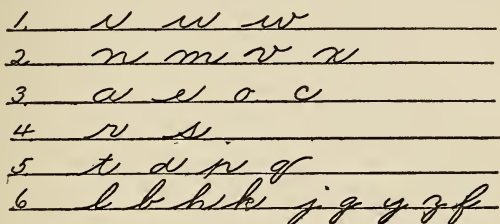 1. i u w
2 n m v x
3 a e o c
4 r s
5 t d p q
6 l b h k j g y z f